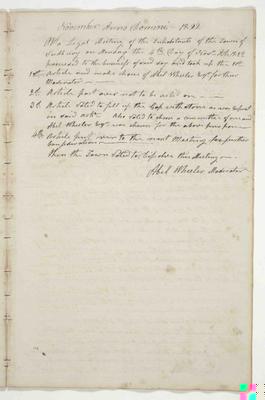 November Anno Domini 1822
At a Legal Meeting of the Inhabitants of the Town of
Sudbury on Monday the 4th Day of Novr AD 1822
proceeded to the business of said day and took up the 1st
1st Article and made choice of Abel Wheeler Esqr for their
Moderator
2d Article past over not to be acted on
3d Article Voted to fill up the Gap with stone as now
in said Art. Also Voted to chose a committee of one and
Abel Wheeler Esqr was chosen for the above purpose
4th Article past over to the next Meeting for further
Consideration
Then the Town Voted to this Meeting
Abel Wheeler Moderator